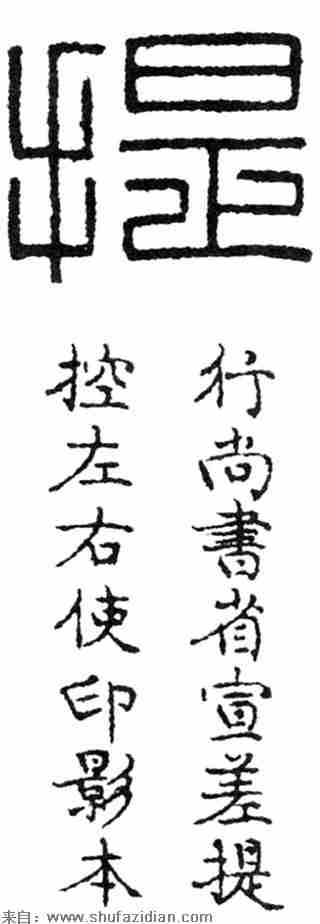 提
行尚書省宣差提
控左右使印影本
来自：www.shufazidian.com